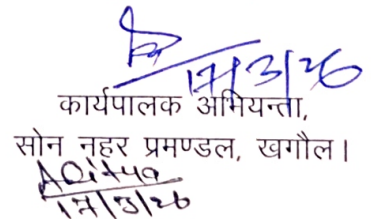 17/3/26
कार्यपालक अभियन्ता,
सोन नहर प्रमण्डल, खगौल।
Aditya
17/3/26